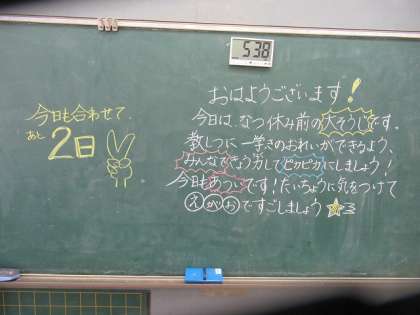 今日も合わせて
あと
2日
538
おはようございます!
今日は、なつ休み前の大そうじです。
教しつに一学きのおれいができるよう、
みんなできょう力してピカピカにしましょう!
今日もあついです!たいちょうに気をつけて
えがおですごしましょう